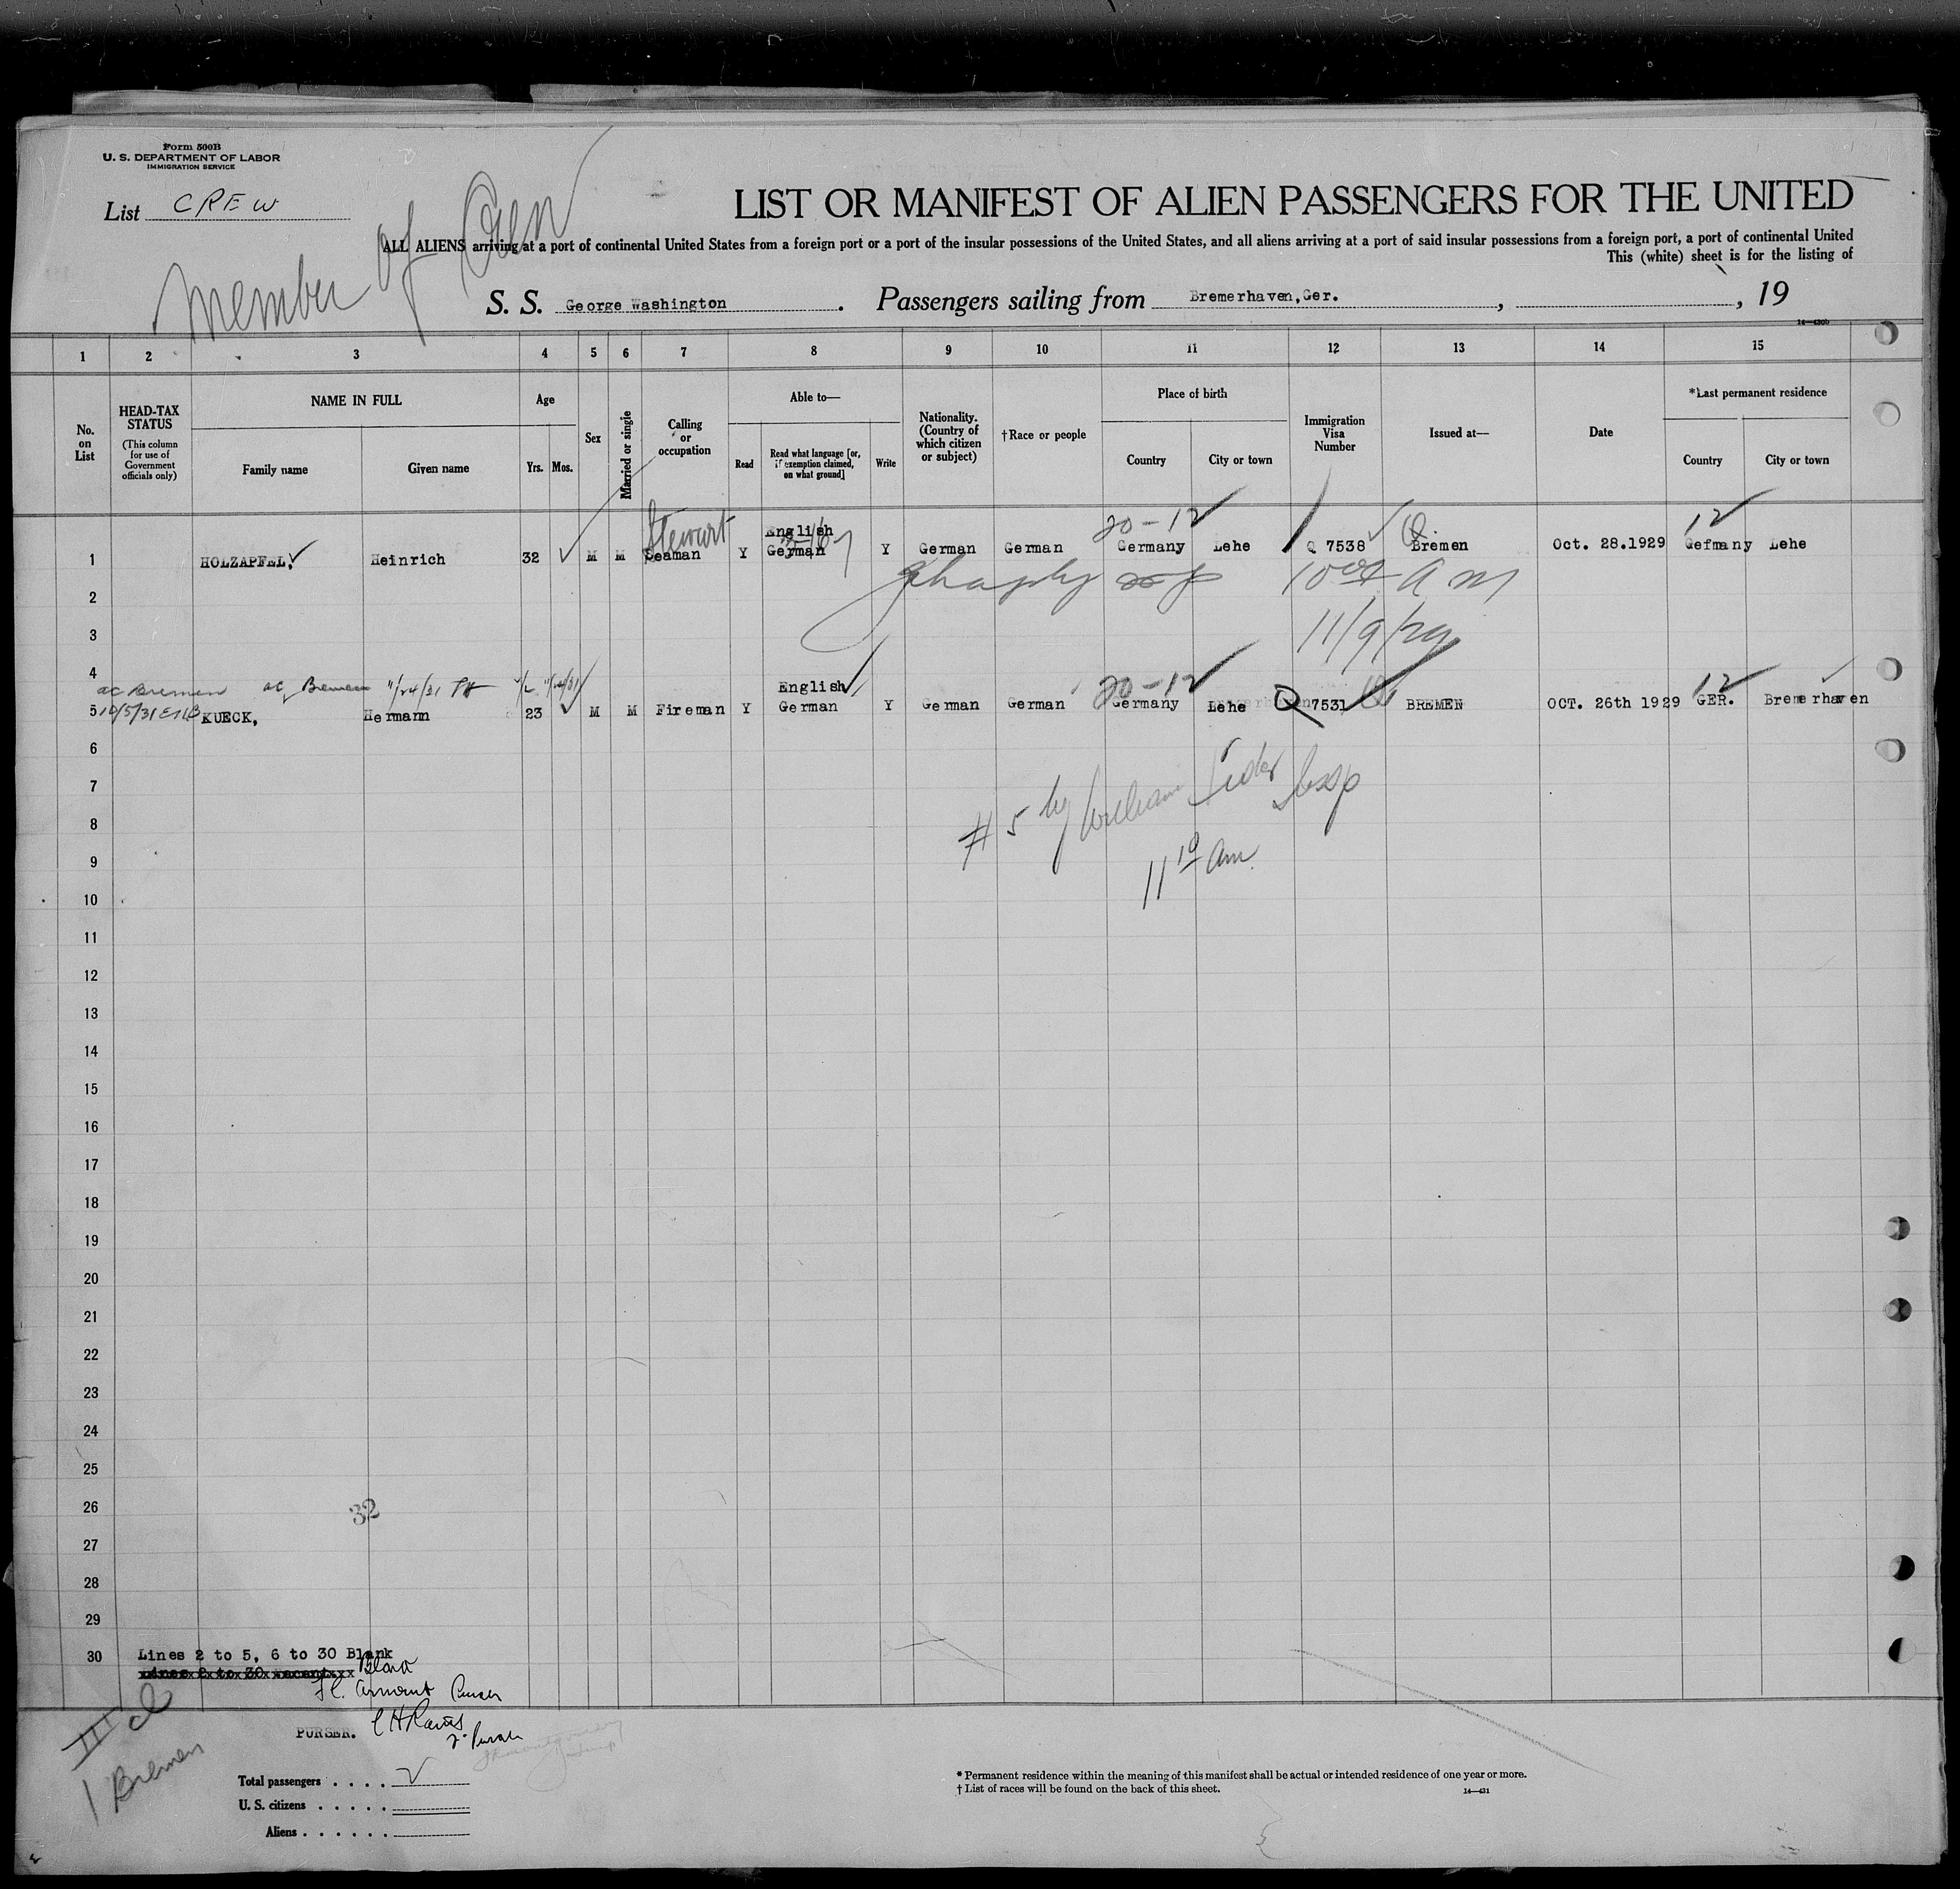 Form 500B
U. S. DEPARTMENT OF LABOR
IMMIGRATION SERVICE
List CREW
Member of Crew
LIST OR MANIFEST OF ALIEN PASSENGERS FOR THE UNITED
ALL ALIENS arriving at a port of continental United States from a foreign port or a port of the insular possessions of the United States, and all aliens arriving at a port of said insular possessions from a foreign port, a port of continental United
This (white) sheet is for the listing of
S. S. George Washington. Passengers sailing from Bremerhaven,Ger. , , 19
14—430b
1 2 3 4 5 6 7 8 9 10 11 12 13 14 15
No. on List
HEAD-TAX STATUS
(This column for use of Government officials only)
NAME IN FULL
Family name Given name
Age
Yrs. Mos.
Sex
Married or single
Calling or occupation
Able to—
Read
Read what language [or, if exemption claimed, on what ground]
Write
Nationality. (Country of which citizen or subject)
†Race or people
Place of birth
Country City or town
Immigration Visa Number
Issued at—
Date
*Last permanent residence
Country City or town
Stewart English 20-12 12
1 HOLZAPFEL, Heinrich 32 M M Seaman Y German Y German German Germany Lehe Q 7538 Bremen Oct. 28.1929 Gefmany Lehe
2 10 AM
3 11/9/29
4
ac Bremen ac Bremen 11/24/31 English 20-12 12
5 10/5/31 KUECK, Hermann 23 M M Fireman Y German Y German German Germany Lehe Q 7531 BREMEN OCT. 26th 1929 GER. Bremerhaven
6
7
# 5 by William
8
9
11 10 am
10
11
12
13
14
15
16
17
18
19
20
21
22
23
24
25
26
32
27
28
29
30 Lines 2 to 5, 6 to 30 Blank
Lines 2 to 30 vacant
Purser
PURSER.
2. Purser
II cl
1 Bremen
Total passengers . . . .
U. S. citizens . . . . .
Aliens . . . . . .
* Permanent residence within the meaning of this manifest shall be actual or intended residence of one year or more.
† List of races will be found on the back of this sheet.
14—431